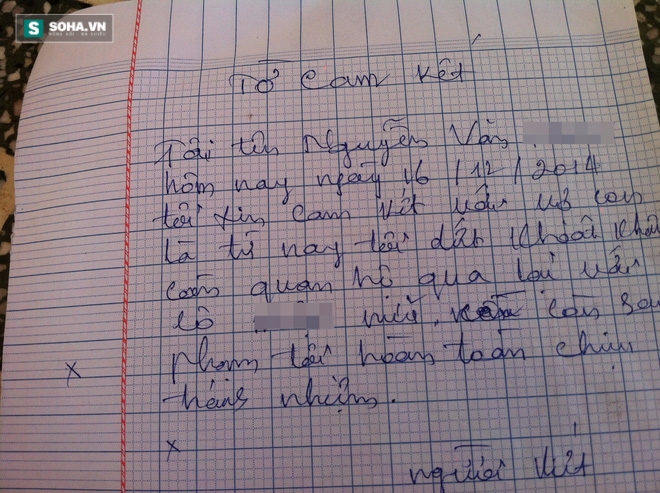 SOHA.VN
Tờ Cam Kết
Tôi tên Nguyễn Văn
hôm nay ngày 16/12/2014
tôi xin cam kết với vợ con
là từ nay tôi dứt khoát khôn
còn quan hệ qua lại với
cô nữa. còn
phạm tôi hoàn toàn chịu
nhiệm.
người viết